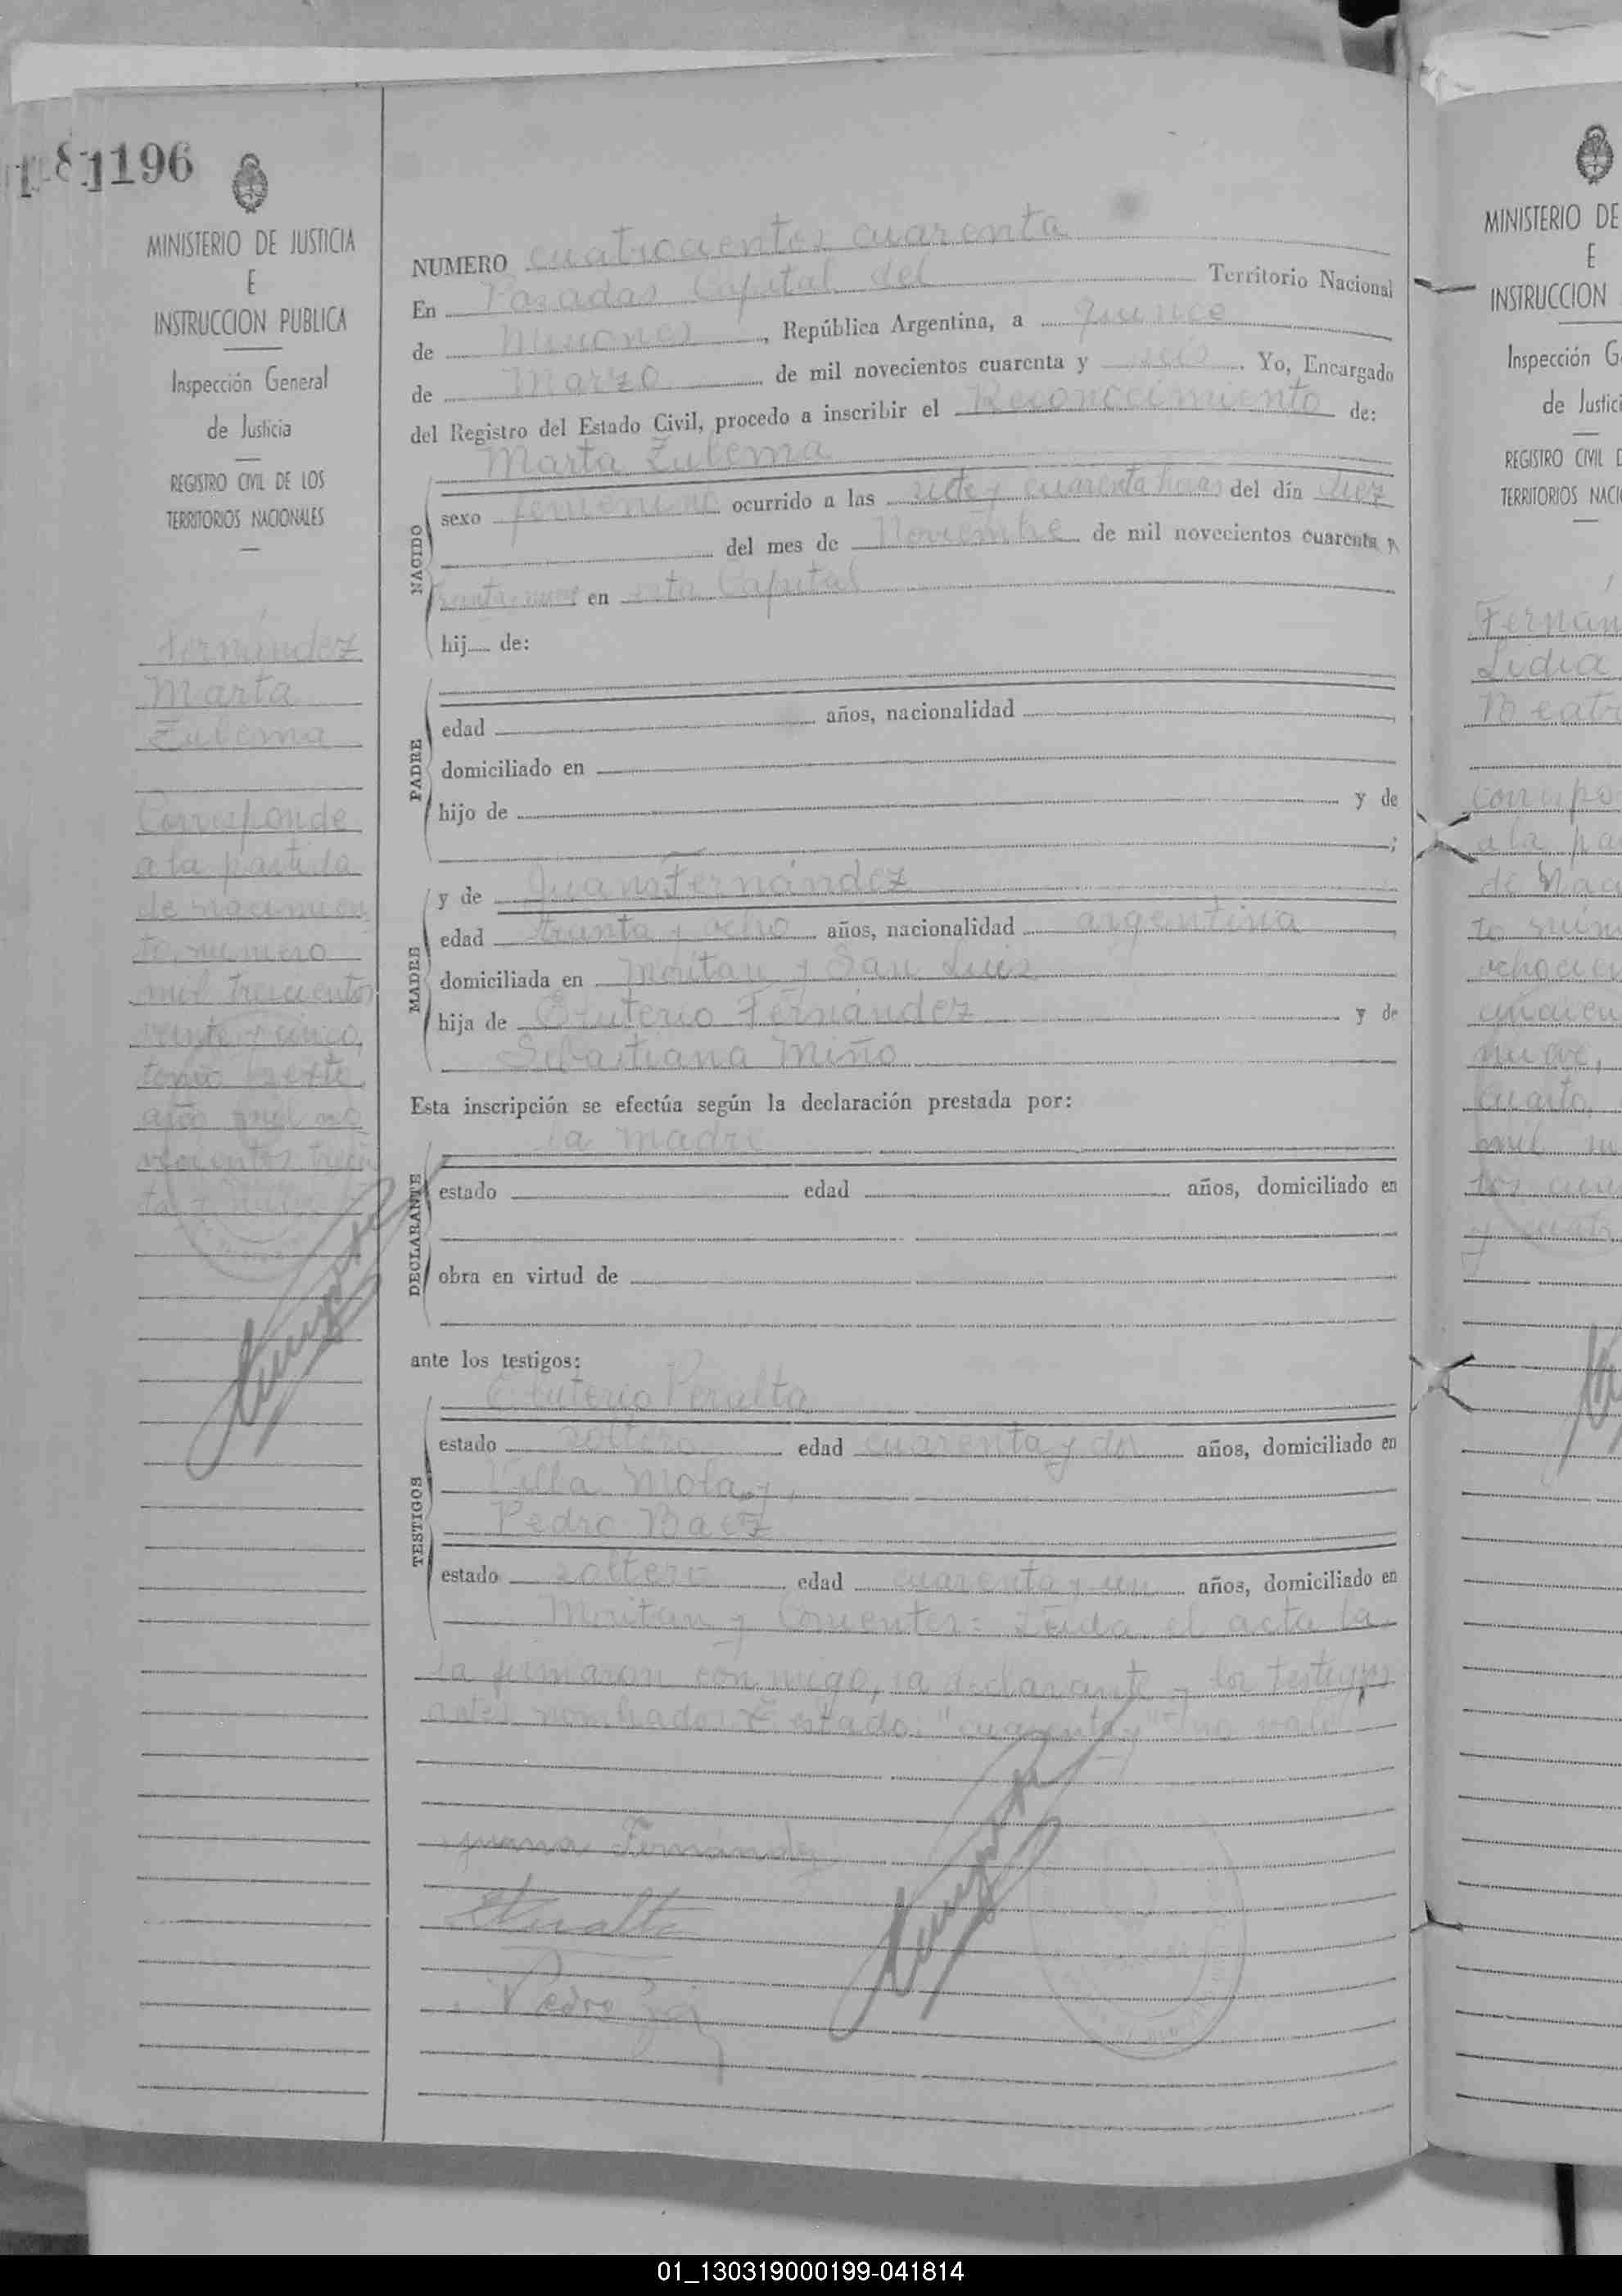 1196
MINISTERIO DE JUSTICIA
E
INSTRUCCION PUBLICA
Inspección General
de Justicia
REGISTRO CIVIL DE LOS
TERRITORIOS NACIONALES
Fernández
Marta
Zulema
Corresponde
a la partida
de nacimien
to, número
mil trescientos
veinte y cinco,
tomo sexto,
año mil no
vecientos trein
ta y nueve
NUMERO cuatrocientos cuarenta
En Posadas Capital del Territorio Nacional
de Misiones, República Argentina, a quince
de Marzo de mil novecientos cuarenta y seis. Yo, Encargado
del Registro del Estado Civil, procedo a inscribir el Reconocimiento de:
Marta Zulema
NACIDO
sexo femenino ocurrido a las siete y cuarenta horas del día diez
del mes de Noviembre de mil novecientos cuarenta y
treinta y nueve en esta Capital
hij de:
PADRE
edad años, nacionalidad
domiciliado en
hijo de y de
;
MADRE
y de Juana Fernández
edad treinta y ocho años, nacionalidad argentina
domiciliada en Moritan y San Luis
hija de Eluterio Fernández y de
Sebastiana Miño
Esta inscripción se efectúa según la declaración prestada por:
la madre
DECLARANTE
estado edad años, domiciliado en
obra en virtud de
ante los testigos:
TESTIGOS
Eluterio Peralta
estado soltero edad cuarenta y dos años, domiciliado en
Villa Mola y
Pedro Baez
estado soltero edad cuarenta y un años, domiciliado en
Moritan y Corrientes: Leida el acta la
la firmaron conmigo, la declarante y los testigos
antes nombrados Testado: "cuarenta y" no vale
Juana Fernández
Peralta
Pedro
MINISTERIO DE
E
INSTRUCCION
Inspección G
de Justici
REGISTRO CIVIL D
TERRITORIOS NACI
Fernán
Lidia
Beatr
Correspo
a la pa
de Naci
to núm
ochocien
cincuen
nueve,
cuarto,
mil no
tos cuar
y cuatr
01_130319000199-041814